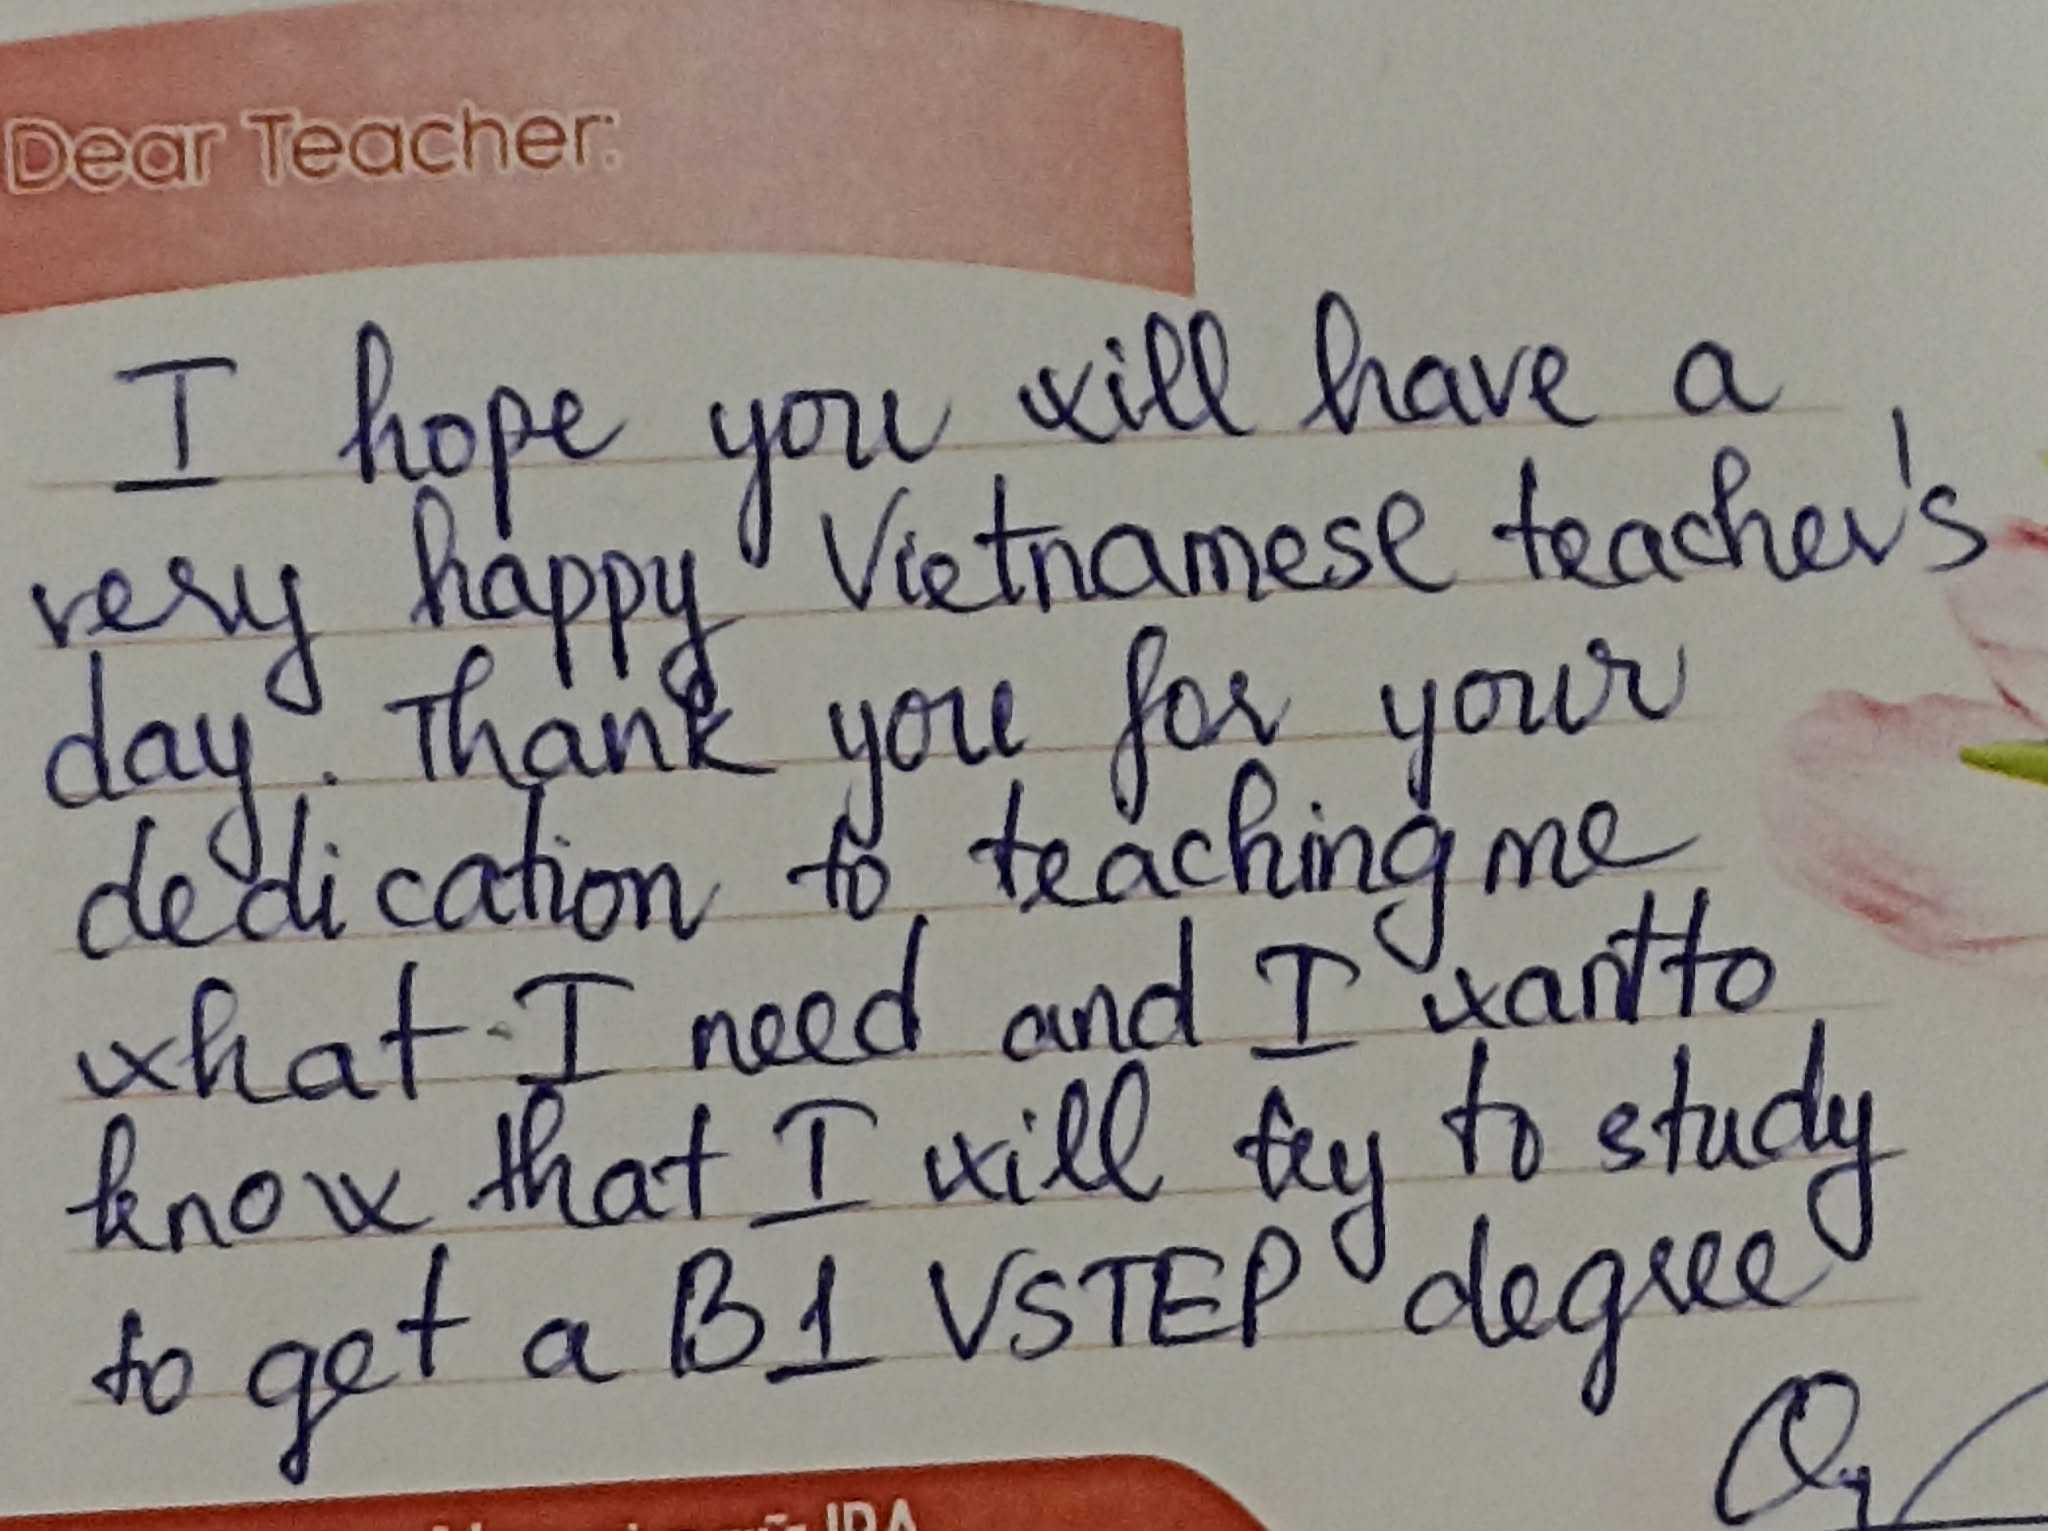 Dear Teacher:
I hope you will have a
very happy Vietnamese teacher's
day. Thank you for your
dedication to teaching me
what I need and I want to
know that I will try to study
to get a B1 VSTEP degree
IRA